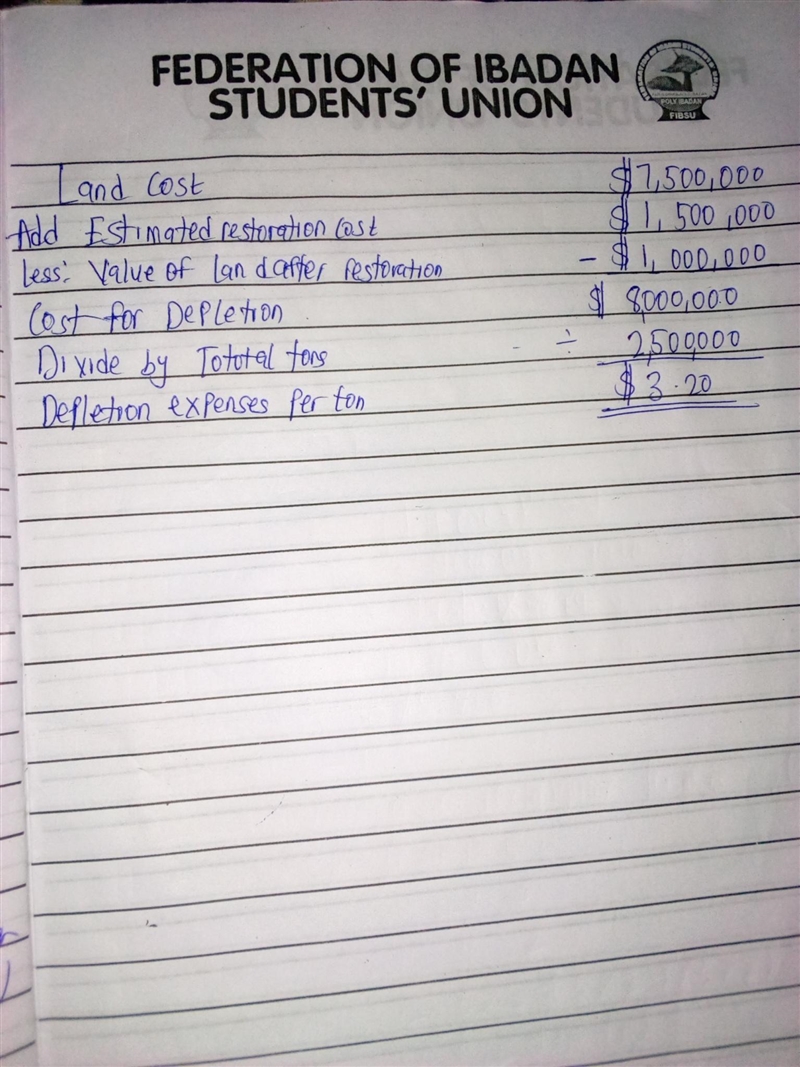 FEDERATION OF IBADAN
STUDENTS' UNION
POLY IBADAN
FIBSU
Land Cost $7,500,000
Add Estimated restoration Cost $1,500,000
Less: Value of Land after restoration - $1,000,000
Cost for Depletion $8,000,000
Divide by Tototal tons ÷ 2,500,000
Depletion expenses Per ton $3.20